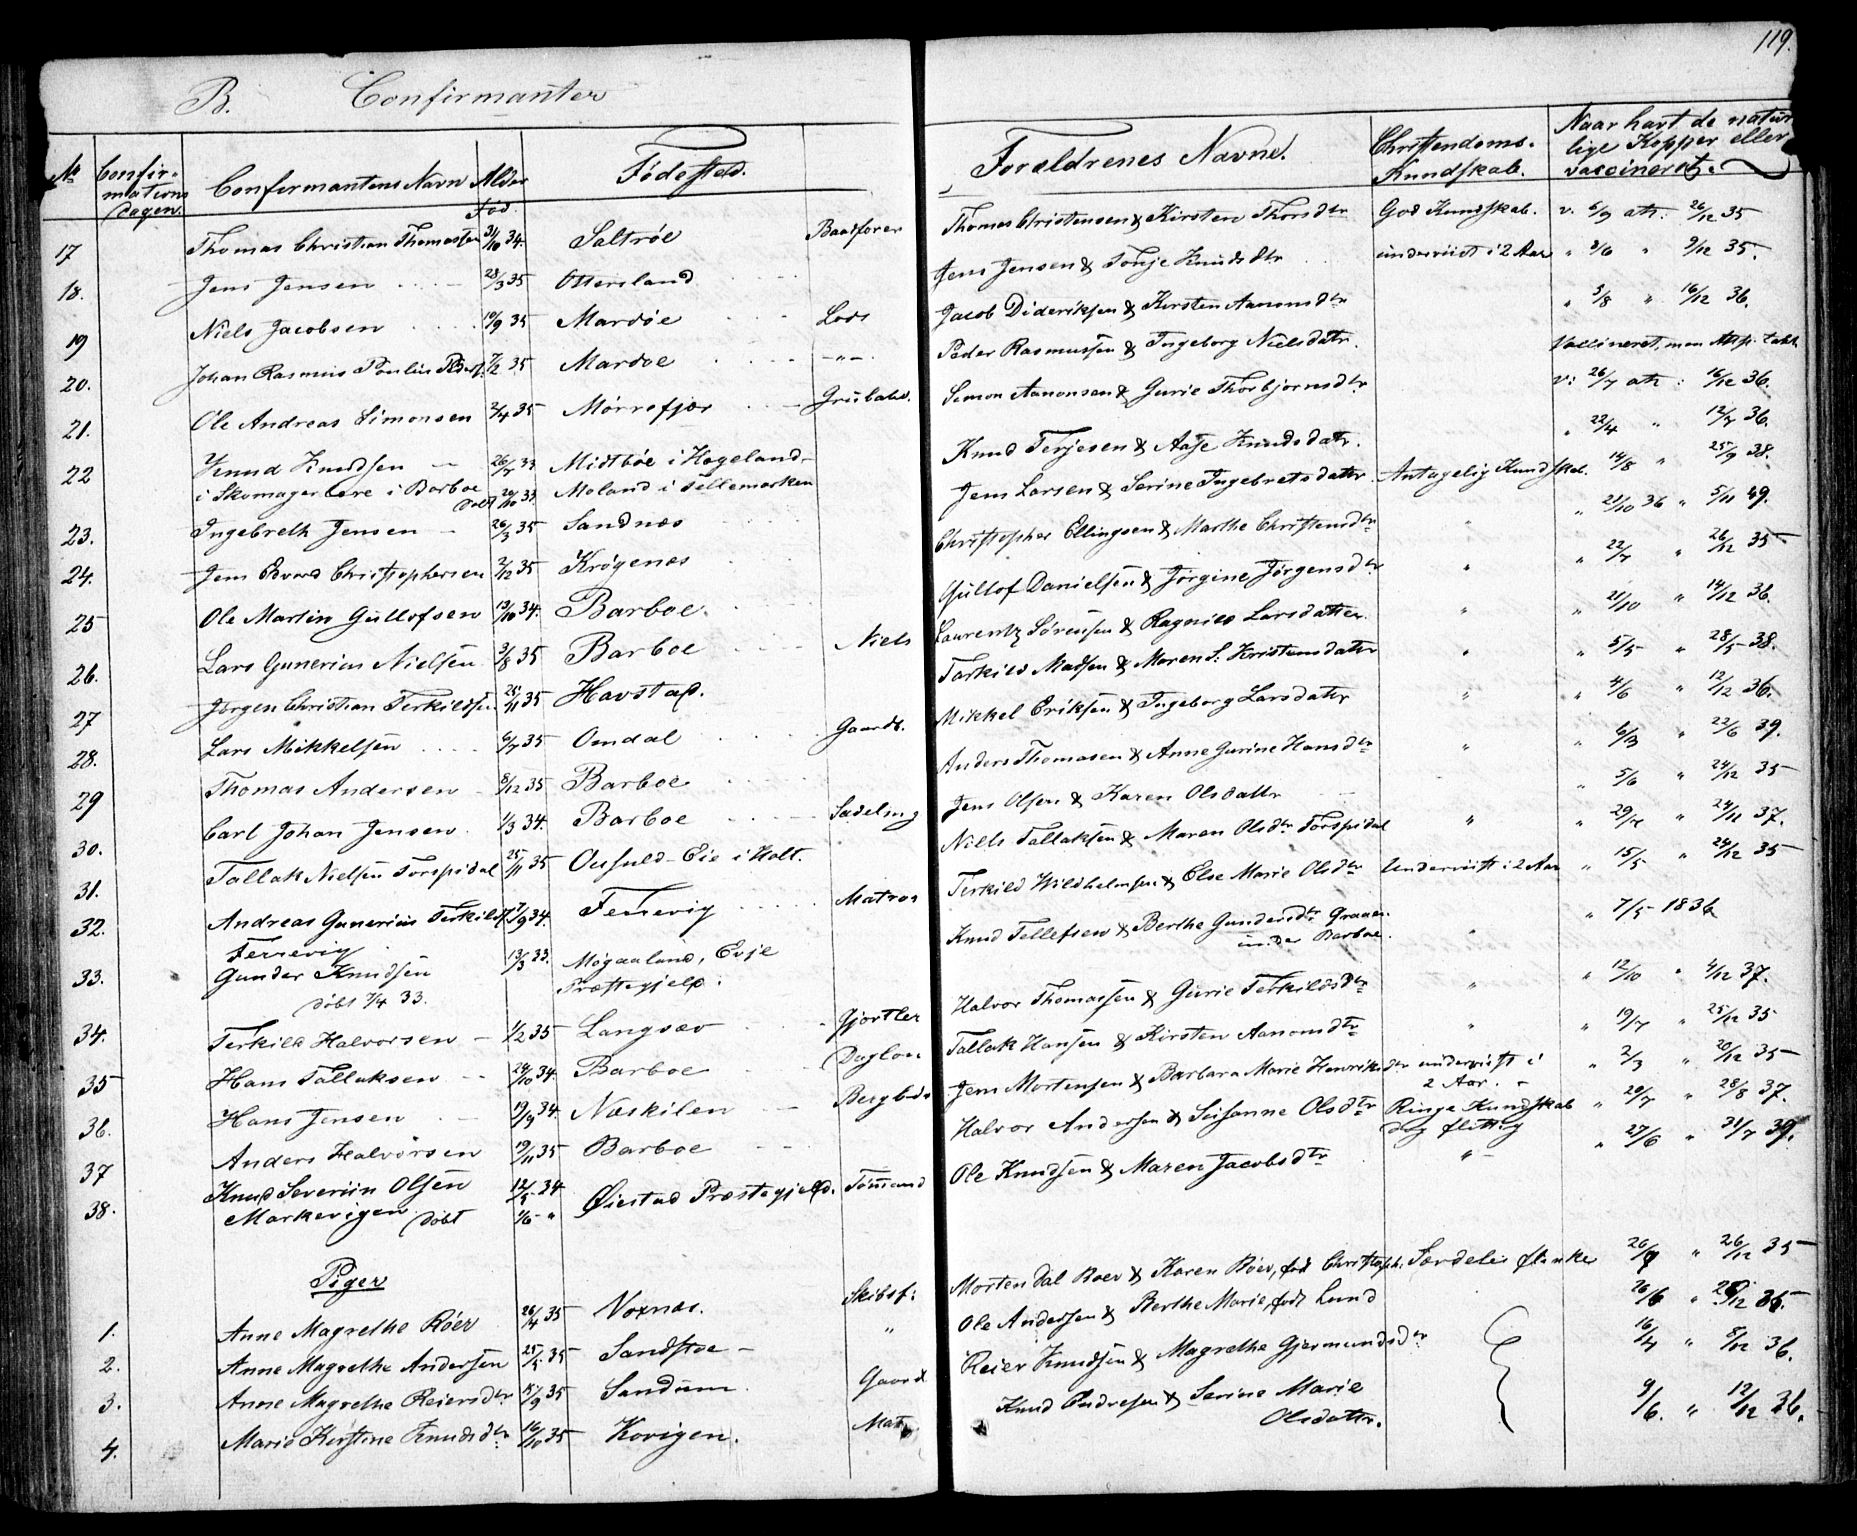 119.
B. Confirmanter
No Confirmations Dagen. Confirmantens Navn Alder Født. Fødested. Forældrenes Navne. Christendoms-Kundskab. Naar havt de naturlige Kopper eller vaccineret.
17 Thomas Christian Thomassen 31/10 34. Saltrøe Baadfører Thomas Christensen & Kirsten Thorsdtr God Kundskab. v. 5/9 att: 26/12 35
18. Jens Jensen 28/3 35 Ottersland Jens Jensen & Tonje Knudsdtr underviist i 2 Aar " 2/6 " 9/12 35.
19 Niels Jacobsen 10/9 35 Mardøe Lods Jacob Dideriksen & Kirsten Aanonsdtr " 3/8 " 16/12 36.
20. Johan Rasmus Poulin Peders. 7/2 35 Mardøe -"- Peder Rasmussen & Ingeborg Nielsdatr. Vaccineret, men Attsp. tabt
21. Ole Andreas Simonsen 2/4 35 Mørrefjær Grubearb. Simon Aanonsen & Gurie Thorbjørnsdtr v: 26/7 att: 16/12 36.
22 Knud Knudsen 26/7 33 Midtbøe i Høgeland- Knud Terjesen & Aase Knudsdatr. " 22/4 " 12/7 36.
i Skomagerlære i Barboe Døbt 20/10 33 Moland i Tellemarken
23. Ingebreth Jensen 26/3 35 Sandnæs Jens Larsen & Serine Ingebretsdatter Antagelig Kundskab. 14/8 " 25/9 38.
24. Jens Edvard Christophersen 2/12 35 Krøgenæs Christopher Ellingsen & Marthe Christensdtr " " 21/10 36 " 5/11 49.
25 Ole Martin Gullofsen 13/10 34. Barboe. Gullof Danielsen & Jørgine Jørgensdtr " " 22/7 " 26/12 35
26. Lars Gunerius Nielsen 3/8 35 Barboe Niels Laurentz Sørensen & Ragnild Larsdatter " " 21/10 " 14/12 36.
27 Jørgen Christian Terkildsen 25/11 35 Havstad. Tarkild Madsen & Maren S. Kristensdatr " " 5/5 " 28/5 38.
28. Lars Mikkelsen 6/7 35 Omdal Gaardb. Mikkel Eriksen & Ingeborg Larsdatr " " 4/6 " 12/12 36.
29 Thomas Andersen 8/12 35 Barboe Anders Thomasen & Anne Gurine Hansdtr " " 6/3 " 22/6 39.
30. Carl Johan Jensen 1/3 34. Barboe Sadelmg Jens Olsen & Karen Olsdattr " 5/6 " 24/12 35
31. Tallak Nielsen Torspidal 25/11 35 Ousuld-Eie i Holt. Niels Tallaksen & Maren Olsdtr Torspidal " " 29/12 " 24/11 37.
32. Andreas Gunerius Terkilds. 7/9 34. Terrevig Matros Terkild Wildhelmsen & Else Marie Olsdtr Underviist i 2 Aar " 15/5 " 24/12 35
Terrevig
33. Gunder Knudsen 13/3 33. Møgaaland, Evje Præstegjeld. Knud Tellefsen & Berthe Gundersdtr Graaer under Barboe. " " 7/5- 1836
Døbt 7/4 33.
34. Terkild Halvorsen 1/2 35 Langsæv Gjørtler Halvor Thomassen & Gurie Terkildsdtr " " 12/10 " 4/12 37.
35 Hans Tallaksen 24/10 34. Barboe Daglon Tallak Hansen & Kirsten Aanonsdtr " " 19/7 " 25/12 35
36. Hans Jensen 19/9 34. Næskilen Bergbds Jens Mortensen & Barbara Marie Henriksdtr underviist i 2 Aar. " 2/3 " 20/12 35
37 Anders Halvorsen 19/11 35 Barboe Halvor Andersen & Susanne Olsdtr Ringe Kundskab dog flittig " 20/7 " 28/8 37.
38. Knud Severiin Olsen 12/5 34 Øiestad Præstegjeld. Tømmerd Ole Knudsen & Maren Jacobsdtr " " 27/6 " 31/7 39.
Markevigen Døbt 1/6 - "
Piger
1. Anne Magrethe Røer 26/4 35 Noxnæs. Skibsf: Morten Dal Roer & Karen Røer, født Christoph. Særdeles flinke 26/9 " 26/12 35
2. Anne Magrethe Andersen 25/5 35 Sandstøe " Ole Andersen & Berthe Marie, født Lund 20/6 " 12 35.
3. Anne Magrethe Reiersdtr 15/9 35 Sandum. Gaard Reier Knudsen & Magrethe Gjermundsdtr 16/4 " 8/12 36.
4. Marie Kirstine Knudsdtr 16/10 35 Kovigen. Mat Knud Endresen & Serine Marie Olsdattr. 9/6. " 12/12 36.